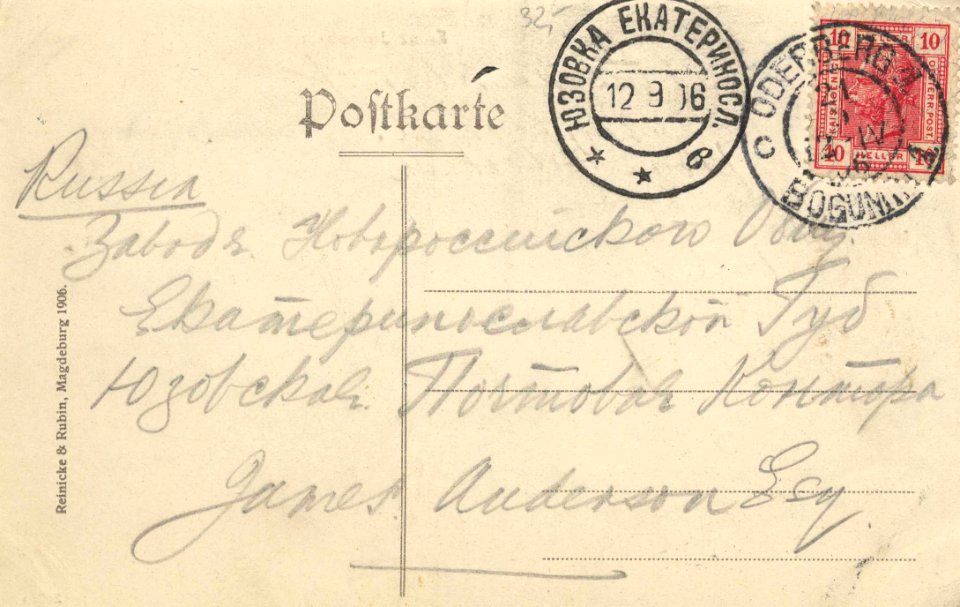 32,
ЮЗОВКА ЕКАТЕРИНОСЛ.
12 9 06
в
ODERBERG
BOGUMIN
10 10
10 HELLER 10
Postkarte
Russia
Заводъ Новороссийского Общ.
Екатеринославской Губ
Юзовская Почтовая Контора
James Anderson Esq
Reinicke & Rubin, Magdeburg 1906.